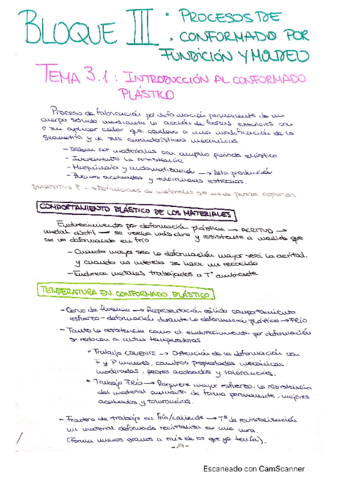 BLOQUE III. PROCESOS DE
CONFORMADO POR
FUNDICIÓN Y MOLDEO
TEMA 3.1: INTRODUCCIÓN AL CONFORMADO
PLÁSTICO
Proceso de fabricación por deformación permanente de un
cuerpo sólido mediante la acción de fuerzas exteriores con
o sin aplicar calor que conlleva a una modificación de la
geometría y de sus características mecánicas
- Deben ser materiales con amplio período plástico
- Incrementa la resistencia
- Maquinaria y automatización → alta producción
- Buenos acabados y tolerancias estrechas.
COMPORTAMIENTO PLÁSTICO DE LOS MATERIALES
Endurecimiento por deformación plástica → ACRITUD →
metal dúctil → se vuelve más duro y resistente a medida que
se va deformando en frío
- Cuanto mayor sea la deformación mayor será la acritud
y cuando no interesa se hace un recocido
- Endurece metales trabajados a Tª ambiente
TEMPERATURA EN CONFORMADO PLÁSTICO
- Curva de fluencia → Representación sólida comportamiento
esfuerzo-deformación durante la deformación plástica → FRÍO
- Tanto la resistencia como el endurecimiento por deformación
se reducen a altas temperaturas
• Trabajo CALIENTE → Obtención de la deformación con
F y P menores, cambios propiedades mecánicas
moderadas, peores acabados y tolerancias.
• Trabajo FRÍO → Requiere mayor esfuerzo. La resistencia
del material aumenta de forma permanente. mejores
acabados y tolerancias.
- Frontera de trabajo en frío/caliente → Tª de recristalización
un material deformado recristaliza en una hora.
(Forma nuevos granos a raíz de los que ya tenía).
Escaneado con CamScanner